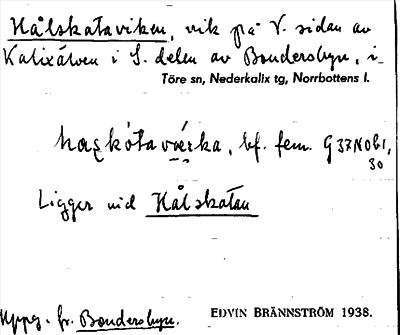 Kålskataviken, vik på V. sidan av
Kalixälven i S. delen av Bondersbyn, i
Töre sn, Nederkalix tg, Norrbottens l.
bf. fem. G 37 N 0 b 1,
30
Ligger vid Kålskatan
Uppg. fr. Bondersbyn.
EDVIN BRÄNNSTRÖM 1938.